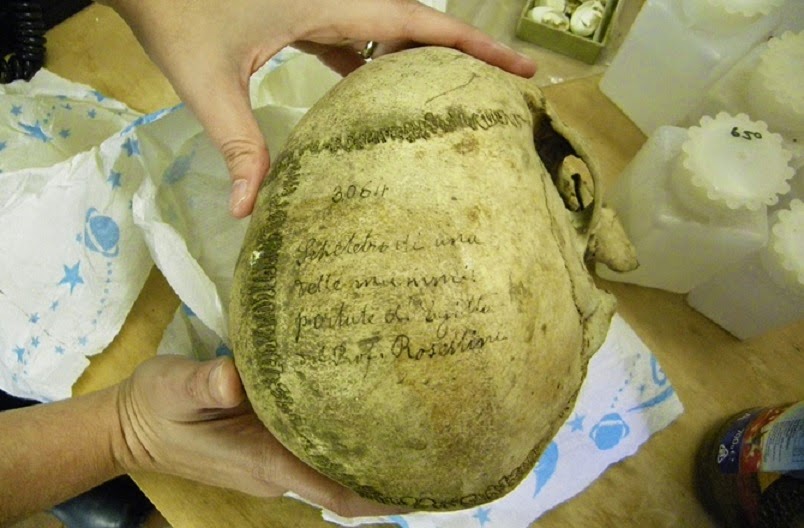 3064
Scheletro di una
delle mummie
portate d'Egitto
dal Prof. Rosellini
650